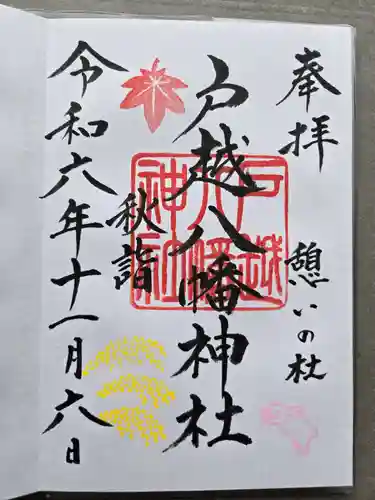 奉拝
憩いの杜
戸越八幡神社
戸越八幡神社
秋詣
令和六年十一月六日